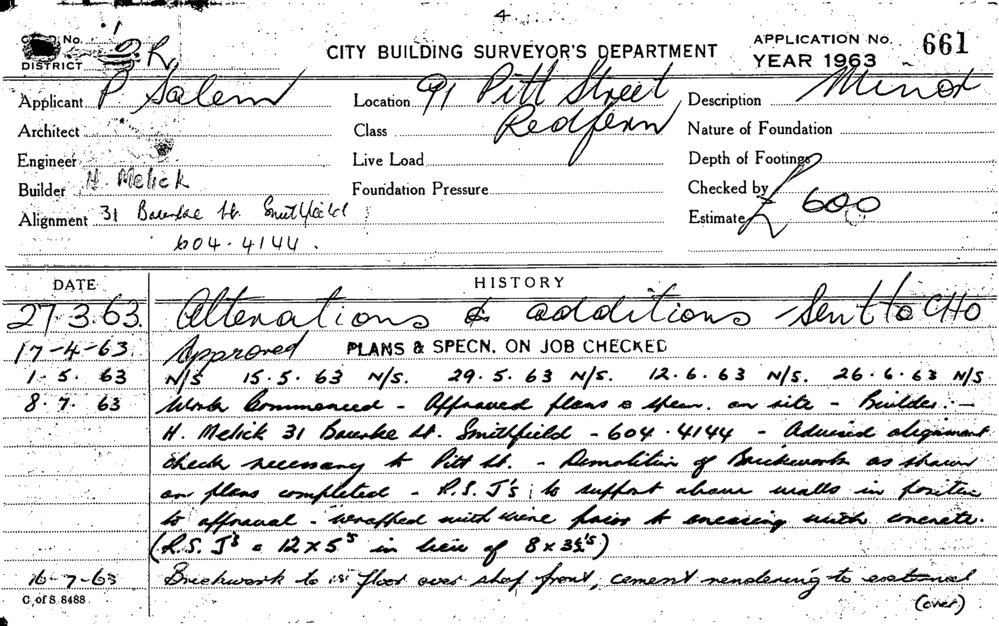 4
No.
2 R
DISTRICT
CITY BUILDING SURVEYOR'S DEPARTMENT
APPLICATION No. 661
YEAR 1963
Applicant P Salem
Location 91 Pitt Street
Redfern
Description Minor
Architect
Class
Nature of Foundation
Engineer
Live Load
Depth of Footings
Builder H. Melick
Foundation Pressure
Checked by
Alignment 31 Bourke St. Smithfield
Estimate £ 600
604.4144.
DATE HISTORY
27.3.63. Alterations & additions Sent to CHO
17-4-63 Approved PLANS & SPECN. ON JOB CHECKED
1.5.63 N/S 15.5.63 N/S. 29.5.63 N/S. 12.6.63 N/S. 26.6.63 N/S
8.7.63 Work Commenced - Approved plans & specn. on site - Builder :-
H. Melick 31 Bourke St. Smithfield - 604.4144 - Advised alignment
check necessary to Pitt St. - Demolition of Brickwork as shown
on plans completed - R.S.J's to support above walls in position
to approval - wrapped with wire prior to encasing with concrete.
(R.S.J's = 12 x 5's in lieu of 8 x 3½'s)
16-7-63 Brickwork to 1st floor over shop front, cement rendering to external
C. of S. 8488
(over)